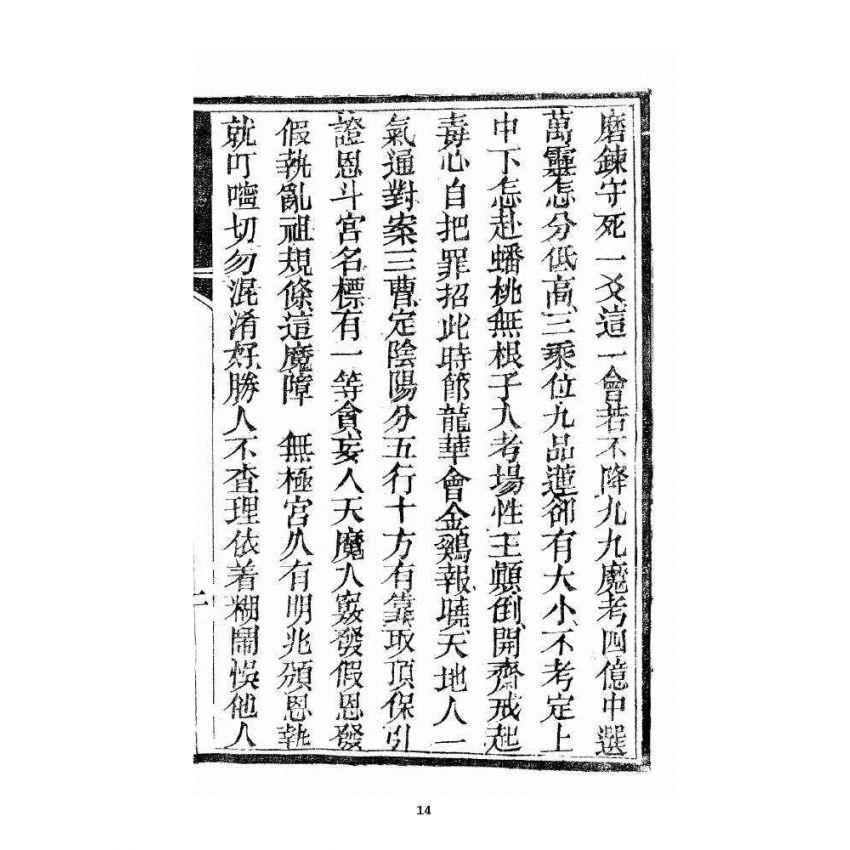 磨鍊守死一爻這一會若不降九九魔考四億中選
萬靈怎分低高三乘位九品蓮郤有大小不考定上
中下怎赴蟠桃無根子入考場性王顛倒開齋戒起
毒心自把罪招此時節龍華會金鷄報曉天地人一
氣通對案三曹定陰陽分五行十方有靠取頂保引
證恩斗宮名標有一等貪妄人天魔入竅發假恩發
假執亂祖規條這魔障 無極宮久有明兆頒恩執
就叮嚀切勿混淆好勝人不查理依着糊鬧悞他人
14